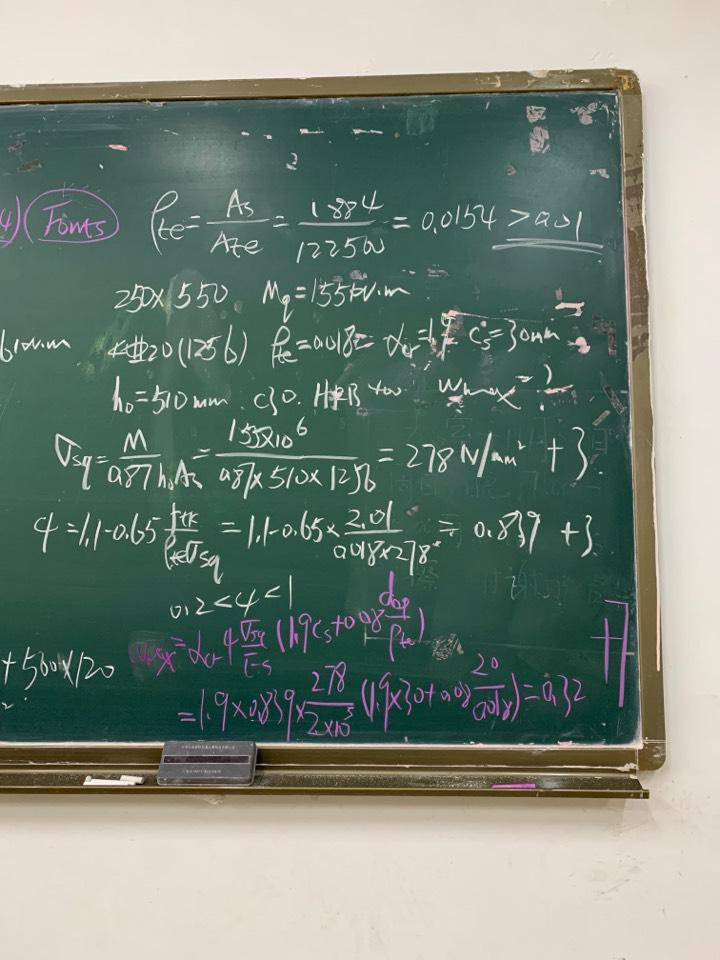 4) (Fomts) ρte = As/Ate = 1884/122500 = 0.0154 > 0.01
250×550 Mq=155kN·m
61kN.m 4⌀20(1256) ρte=0.018 αcr=1.9 cs=30mm
h₀=510mm. C30. HRB400 Wmax=?
σsq = M/0.87h₀As = 155×10⁶/0.87×510×1256 = 278N/mm² +3.
φ=1.1-0.65 ftk/ρteσsq = 1.1-0.65×2.01/0.018×278 = 0.839 +3
0.2<φ<1
ωmax=αcr φ σsq/Es (1.9Cs+0.08 deq/ρte)
+500×120 =1.9×0.839×278/2×10⁵ (1.9×30+0.08 20/0.018)=0.32